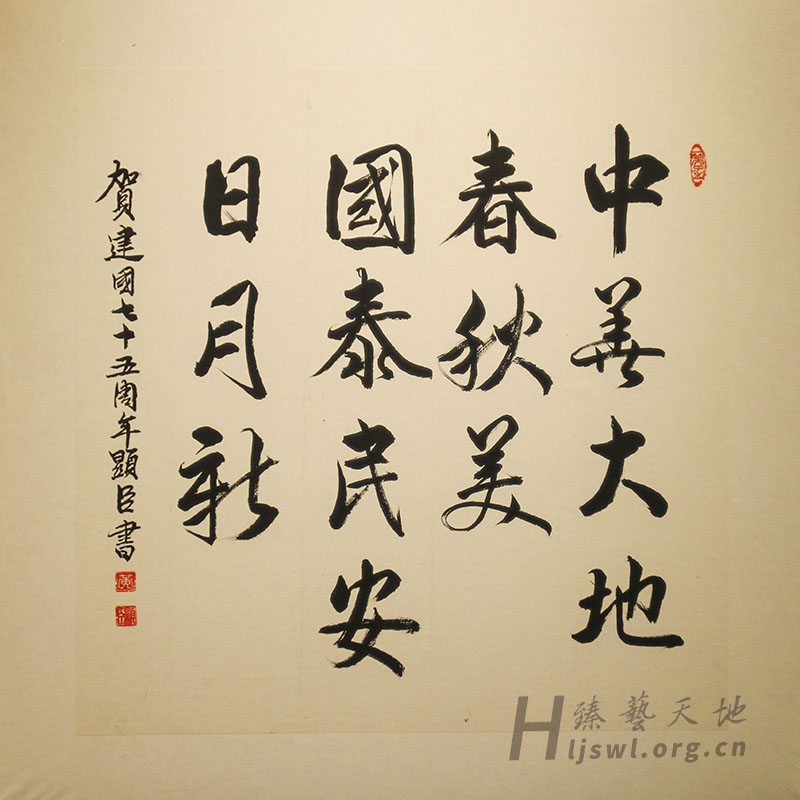 中華大地
春秋美
國泰民安
日月新
賀建國七十五周年顕臣書
黄
臻藝天地
Hljswl.org.cn